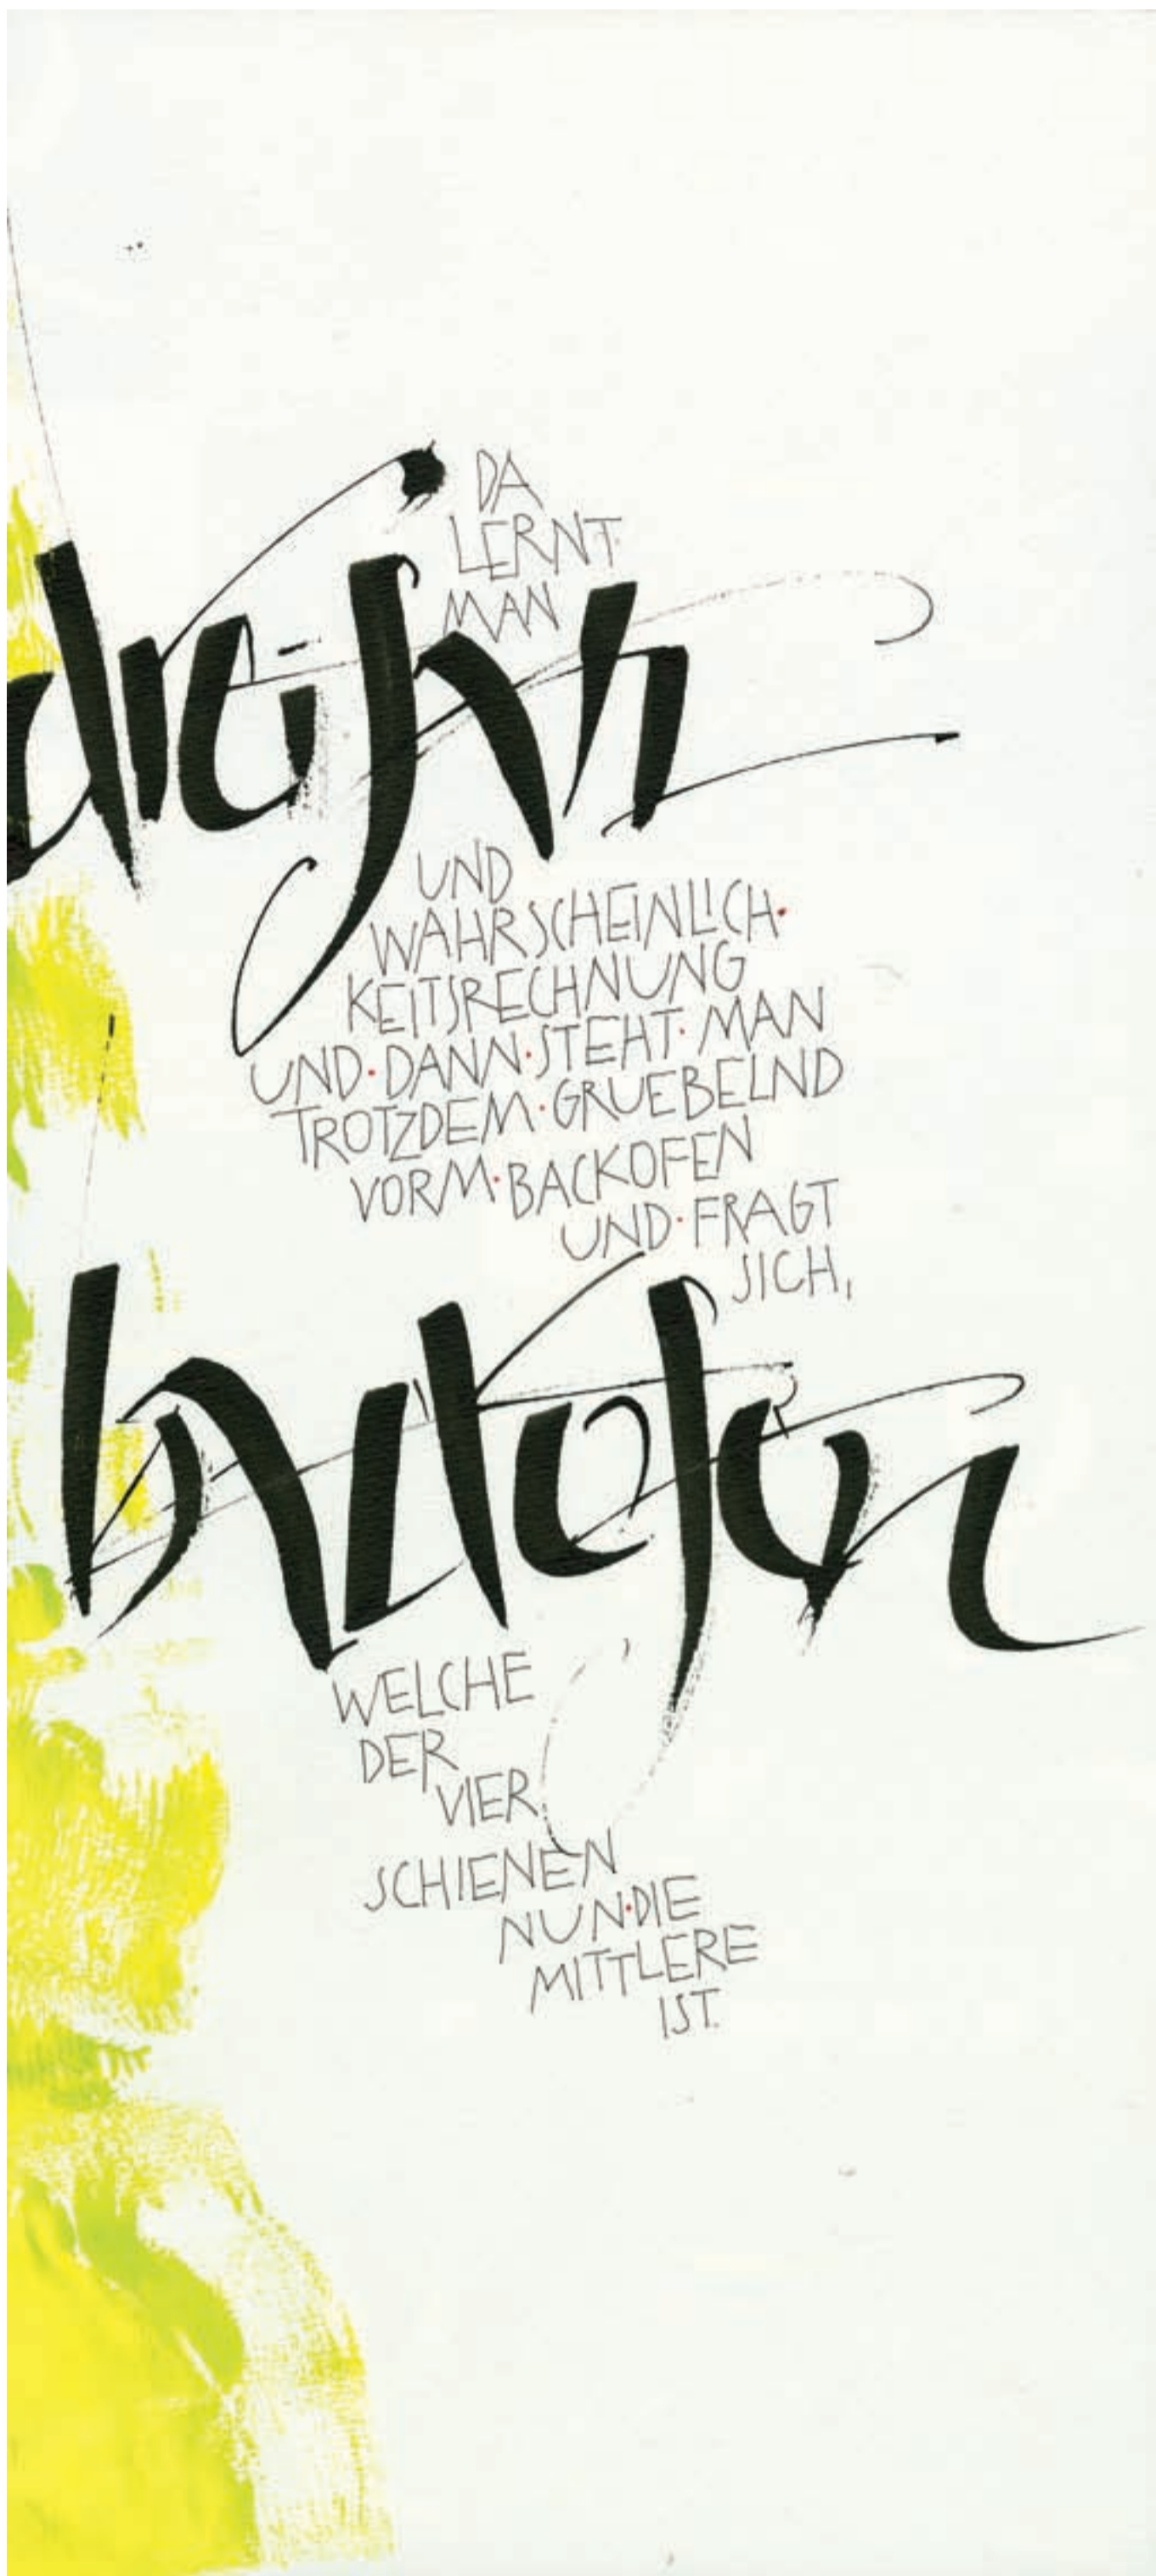 DA
LERNT
MAN
UND
WAHRSCHEINLICH·
KEITSRECHNUNG
UND·DANN·STEHT·MAN
TROTZDEM·GRUEBELND
VORM·BACKOFEN
UND·FRAGT
SICH,
backofen
WELCHE
DER
VIER
SCHIENEN
NUN·DIE
MITTLERE
IST.